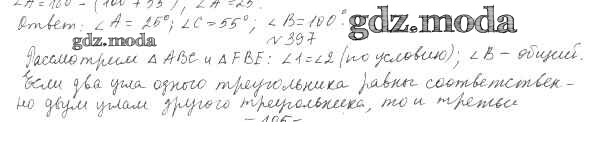 ∠A = 180 - (100 + 55); ∠A = 25.
Ответ: ∠A = 25°; ∠C = 55°; ∠B = 100°.
gdz.moda
gdz.moda
№397
Рассмотрим △ABC и △FBE: ∠1=∠2 (по условию); ∠B - общий.
Если два угла одного треугольника равны соответствен-
но двум углам другого треугольника, то и третьи
- 105 -